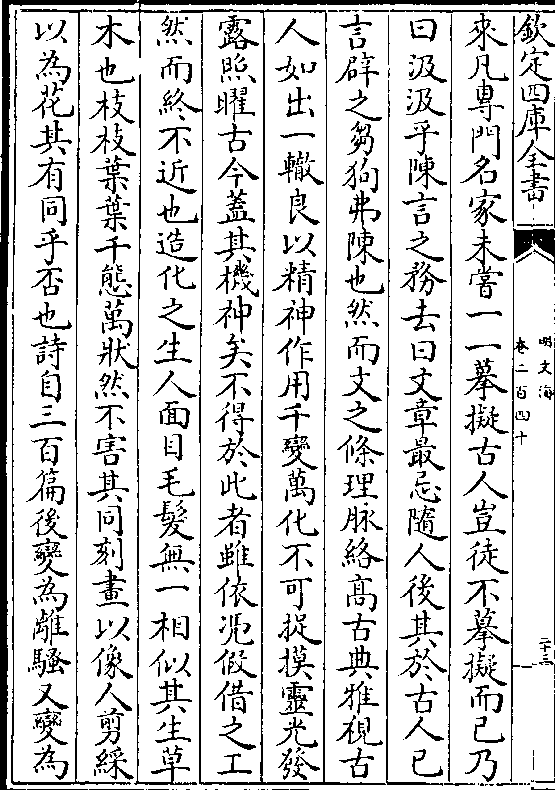 欽定四庫全書
明文海
卷二百四十
二十三
來凡專門名家未嘗一一摹擬古人豈徒不摹擬而已乃
曰汲汲乎陳言之務去曰文章最忌隨人後其於古人已
言辟之芻狗弗陳也然而文之條理脉絡髙古典雅視古
人如出一轍良以精神作用千變萬化不可捉摸靈光發
露熙曜古今葢其機神矣不得於此者雖依凴假借之工
然而終不近也造化之生人面目毛髮無一相似其生草
木也枝枝葉葉千態萬狀然不害其同刻畫以像人剪綵
以為花其有同乎否也詩自三百篇後變為離騷又變為